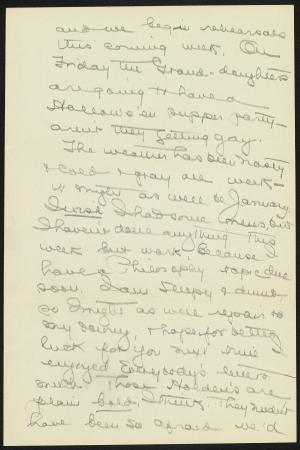 and we begin rehearsals
this coming week. On
Friday the Grand-daughters
are going to have a
Hallow'en supper party—
aren't they getting gay.
The weather has been nasty
& cold & gray all week—
it might as well be January.
I wish I had some news, but
I haven't done anything this
week but work, because I
have a Philosophy topic due
soon. I am sleepy & dumb
so might as well repair to
my downy, & hope for better
luck for you next time. I
enjoyed Everybody's letters
much. Those Holden's are
plain bold I think. They needn't
have been so afraid we'd